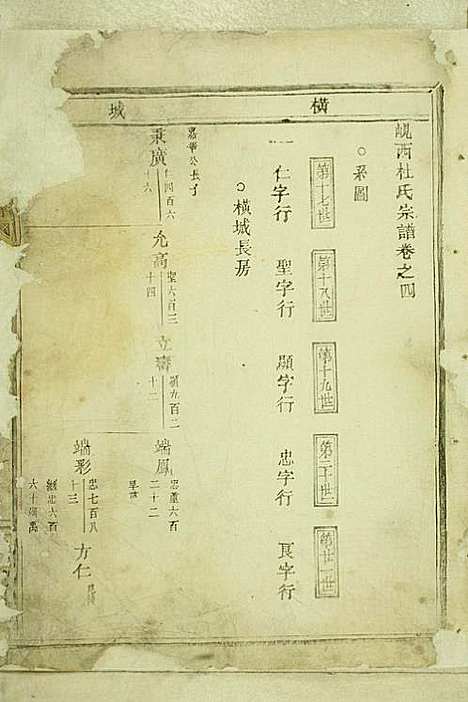 橫城
峴西杜氏宗譜卷之四
○系圖
第十七世 第十八世 第十九世 第二十世 第廿一世
仁字行 聖字行 顯字行 忠字行 良字行
○橫城長房
嘉華公長子
秉廣 仁四百六十六
允高 聖六百三十四
立壽 顯九百二十二
端鳳 忠重六百二十二
端彩 忠七百八十三
繼忠六百六十
方仁